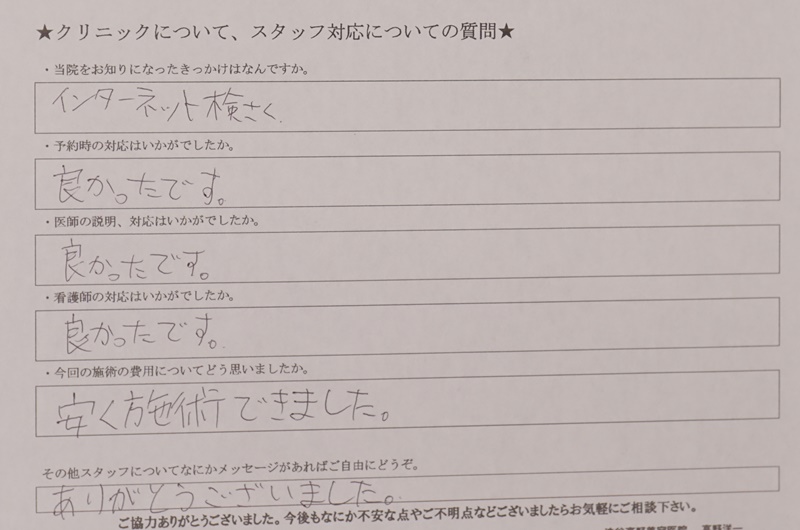 ★クリニックについて、スタッフ対応についての質問★
・当院をお知りになったきっかけはなんですか。
インターネット検さく.
・予約時の対応はいかがでしたか。
良かったです。
・医師の説明、対応はいかがでしたか。
良かったです。
・看護師の対応はいかがでしたか。
良かったです.
・今回の施術の費用についてどう思いましたか。
安く施術できました。
その他スタッフについてなにかメッセージがあればご自由にどうぞ。
ありがとうございました。
ご協力ありがとうございました。今後もなにか不安な点やご不明点などございましたらお気軽にご相談下さい。